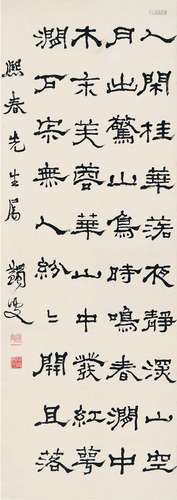 人閑桂華落夜靜溪山空
月出驚山鳥時鳴春澗中
木末芙蓉華山中發紅萼
澗戶寂無人紛〻開且落
熙春先生屬 蠲叟